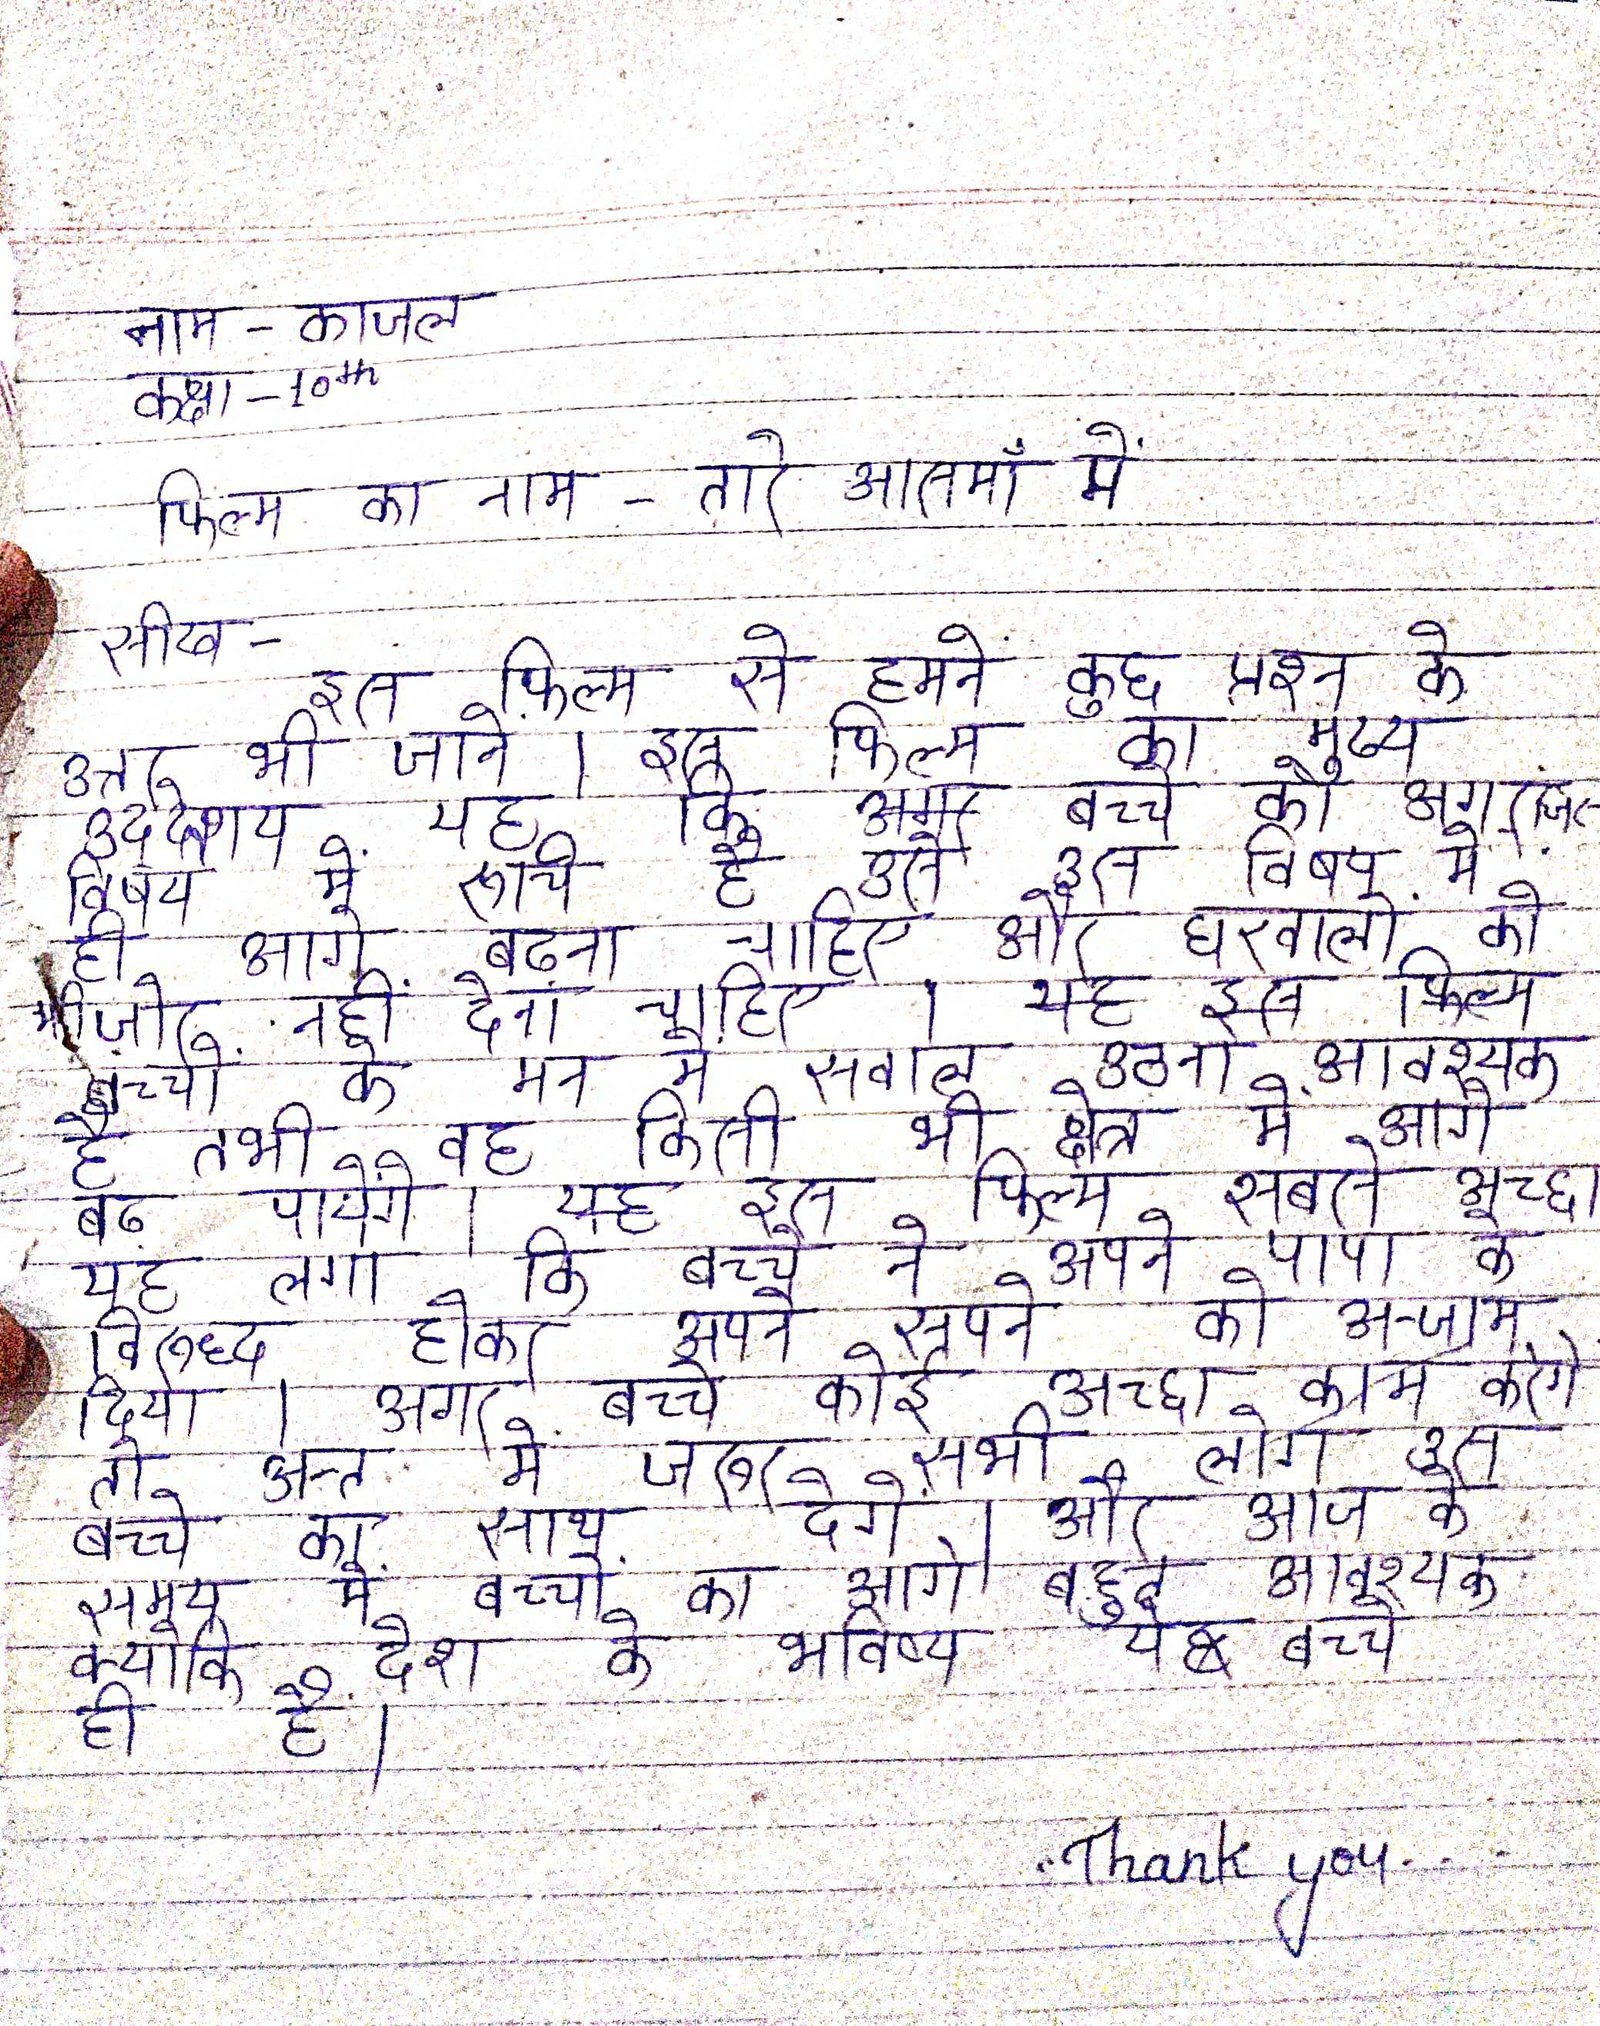 नाम - काजल
कक्षा - 10th
फिल्म का नाम - तारे आसमाँ में
सीख -
इस फिल्म से हमने कुछ प्रश्न के
उत्तर भी जाने । इस फिल्म का मुख्य
उद्देश्य यह कि अगर बच्चे को अगर जिस
विषय में रूचि है उसे उस विषय में
ही आगे बढना चाहिए और घरवालों को
भी जोर नहीं देना चाहिए । यह इस फिल्म
बच्चों के मन में सवाल उठना आवश्यक
है तभी वह किसी भी क्षेत्र में आगे
बढ़ पायेंगे । यह इस फिल्म सबसे अच्छा
यह लगा कि बच्चे ने अपने पापा के
विरुध्द होकर अपने सपने को अन्जाम
दिया । अगर बच्चे कोई अच्छा काम करेगे
तो अन्त में जरूर सभी लोग उस
बच्चे का साथ देगे । और आज के
समय में बच्चों का आगे बहुत आवश्यक
क्योकि देश के भविष्य ये बच्चे
ही है ।
Thank you...